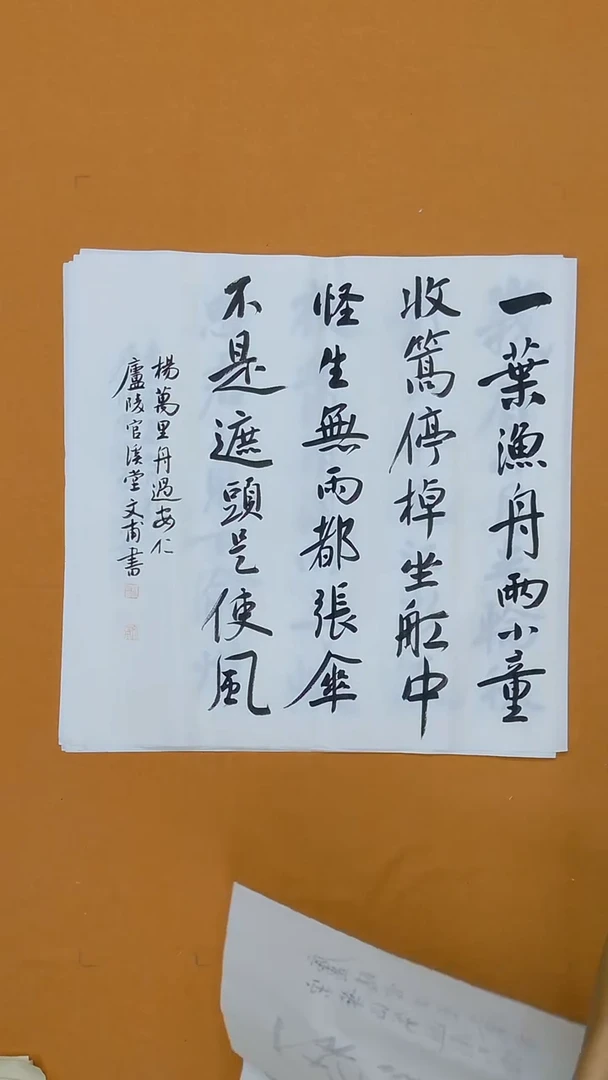 一葉漁舟兩小童
收篙停棹坐舡中
怪生無雨都張傘
不是遮頭是使風
楊萬里舟過安仁
廬陵官溪堂文甫書